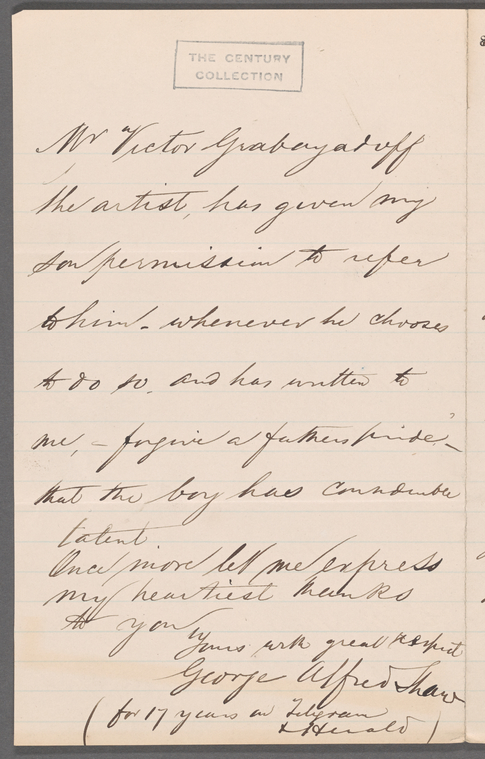 THE CENTURY
COLLECTION
Mr Victor Grabayadoff
the artist, has given my
son permission to refer
to him - whenever he chooses
to do so, and has written to
me, - forgive a fathers pride, -
that the boy has considerable
talent
Once more let me express
my heartiest thanks
to you
Yours with great respect
George Alfred Shaw
(for 17 years on Telegram
& Herald)